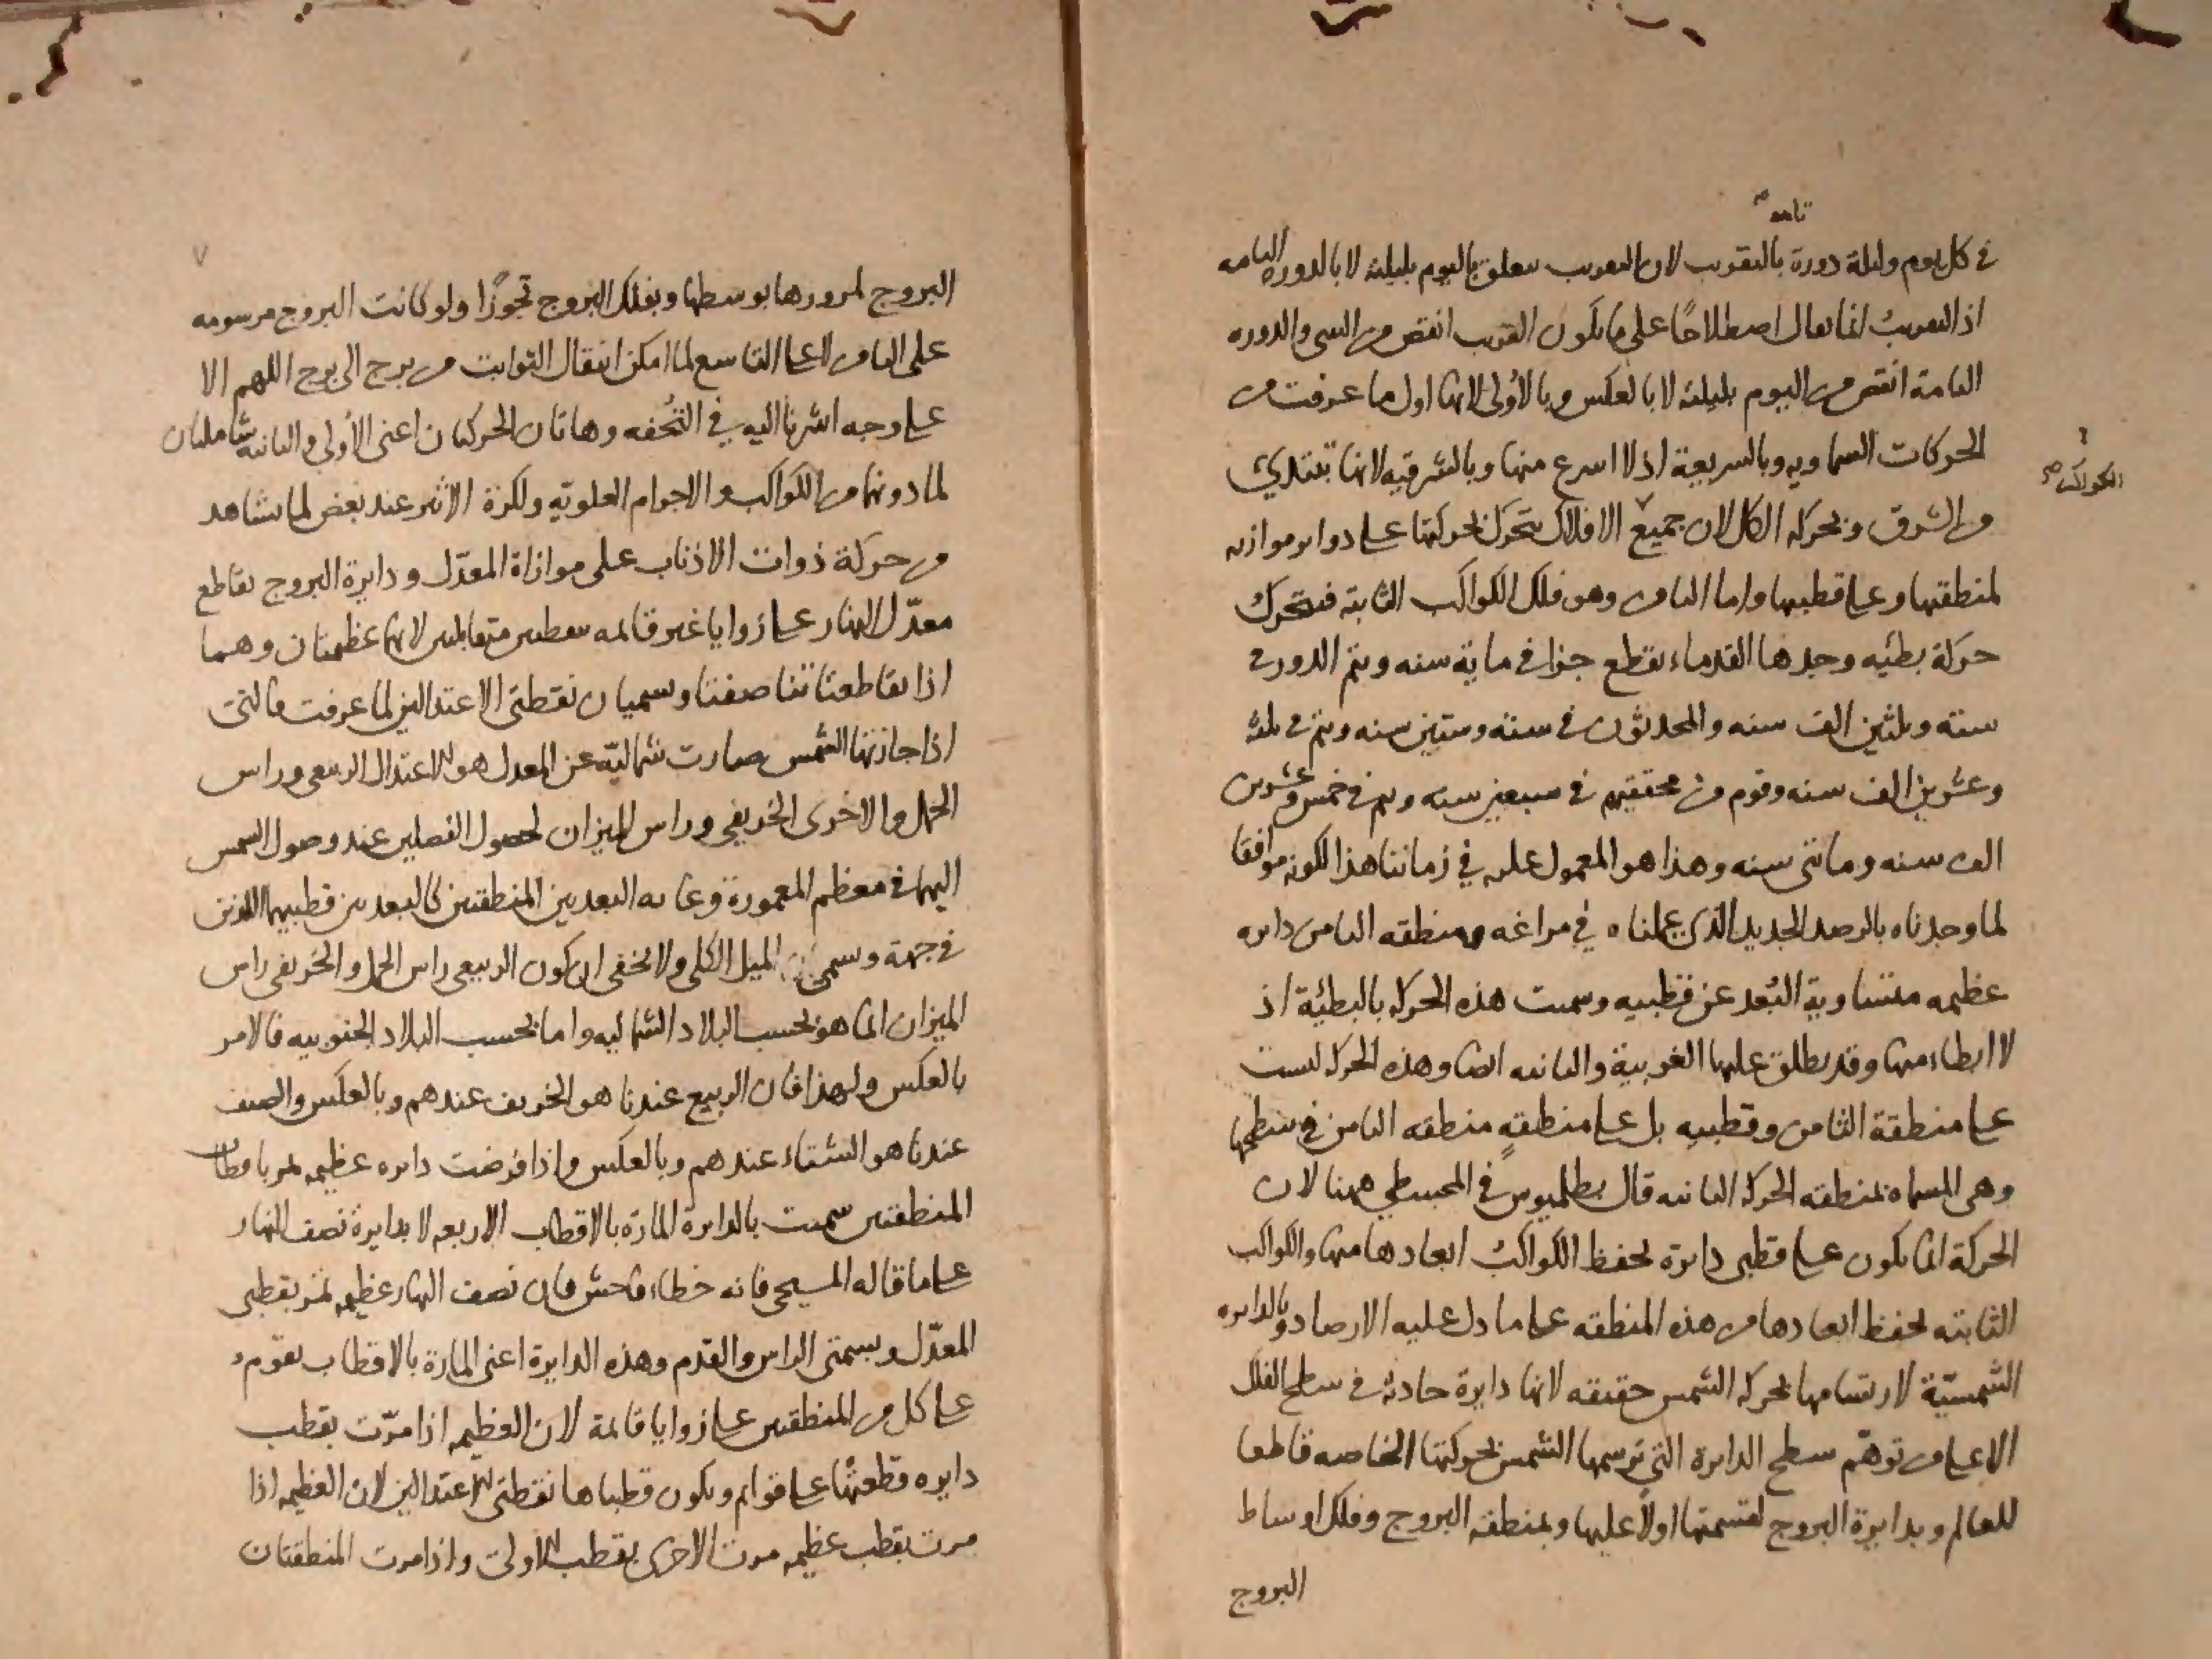 تامه صح
في كل يوم وليلة دورة بالتقريب لان التقريب يتعلق باليوم بليلته لا بالدوره التامه
اذ التقريب انما يقال اصطلاحًا على ما يكون القريب انقص من الشي والدوره
التامة انقص من اليوم بليلته لا بالعكس وبالأولى لانها اول ما عرفت من
الحركات السماويه وبالسريعة اذ لا اسرع منها وبالشرقيه لانها تبتدي
الكواكب صح
من الشرق وبحركه الكل لان جميع الافلاك يتحرك بحركتها على دواير موازيه
لمنطقتها وعلى قطبيها واما الثامن وهو فلك الكواكب الثابته فتتحرك
حركة بطئيه وجدها القدماء يقطع جزا في ماية سنه ويتم الدور في
ستة وثلثين الف سنه والمحدثون في ستة وستين سنه ويتم في ثلثه
وعشرين الف سنه وقوم من محققيهم في سبعين سنه ويتم في خمس وعشرين
الف سنه ومائتي سنه وهذا هو المعمول عليه في زماننا هذا لكونه موافقا
لما وجدناه بالرصد الجديد الذي عملناه في مراغه ومنطقه الثامن دايره
عظيمه متساوية البُعد عن قطبيه وسميت هذه الحركه بالبطيئة اذ
لا ابطاء منها وقد يطلق عليها الغربية والثانيه ايضا وهذه الحركه ليست
على منطقة الثامن وقطبيه بل على منطقةٍ منطقه الثامن في سطحها
وهي المسماه بمنطقه الحركه الثانيه قال بطلميوس في المجسطي ههنا لان
الحركة انما يكون على قطبي دايرة يحفظ الكواكب ابعادها منها والكواكب
الثابته يحفظ ابعادها من هذه المنطقه على ما دل عليه الارصاد وبالدايره
الشمسيّة لارتسامها بحركه الشمس حقيقه لانها دايرة حادثه في سطح الفلك
الاعلى من توهّم سطح الدايرة التي ترسمها الشمس بحركتها الخاصه قاطعا
للعالم وبدايرة البروج لقسمتها اولا عليها وبمنطقه البروج وفلك اوساط
البروج
٧
البروج لمرورها بوسطها وبفلك البروج تجوّزًا ولو كانت البروج مرسومه
على الثامن لا على التاسع لما امكن انتقال الثوابت من برج الى برج اللهم الا
على وجه اشرنا اليه في التُحفه وهاتان الحركتان اعني الأولى والثانيه شاملتان
لما دونهما من الكواكب والاجرام العلويّه ولكرة الاثير عند بعض لما يشاهد
من حركة ذوات الاذناب على موازاة المعدّل ودايرة البروج تقاطع
معدّل النهار على زوايا غير قائمه بنقطتين متقابلتين لانهما عظيمتان وهما
اذا تقاطعتا تناصفتا وتسميان نقطتي الاعتدالين لما عرفت فالتي
اذا جازتها الشمس صارت شماليّه عن المعدل هو الاعتدال الربيعي وراس
الحمل والاخرى الخريفي وراس الميزان لحصول الفصلين عند وصول الشمس
اليهما في معظم المعمورة وغايه البعد بين المنطقتين كالبعد بين قطبيهما اللذين
في جهة وتسمى الميل الكلي ولا يخفى ان كون الربيعي راس الحمل والخريفي راس
الميزان انما هو بحسب البلاد الشماليه واما بحسب البلاد الجنوبيه فالامر
بالعكس ولهذا فان الربيع عندنا هو الخريف عندهم وبالعكس والصيف
عندنا هو الشتاء عندهم وبالعكس واذا فرضت دايره عظيمه تمر باقطاب
المنطقتين سميت بالدايرة المارّة بالاقطاب الاربعه لا بدايرة نصف النهار
على ما قاله المسيحي فانه خطاء فاحش فان نصف النهار عظيمه تمر بقطبي
المعدّل وبسمتي الراس والقدم وهذه الدايرة اعني المارة بالاقطاب تقوم
على كل من المنطقتين على زوايا قائمة لان العظيمه اذا مرّت بقطب
دايره قطعتها على قوايم ويكون قطباها نقطتي الاعتدالين لان العظيمه اذا
مرت بقطب عظيمه مرت الاخرى بقطب الاولى واذا مرت المنطقتان